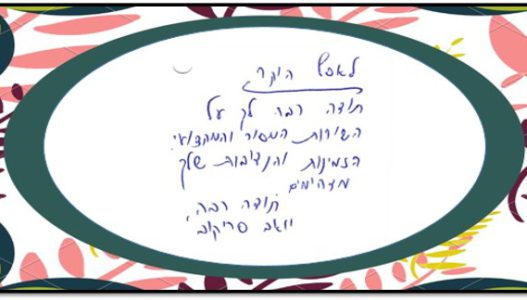 לאסף היקר
תודה רבה לך על
השירות המסור והמקצועי.
הזמינות והנדיבות שלך
מדהימים.
תודה רבה,
יואב סריקוב